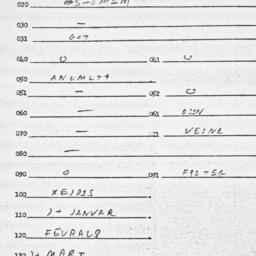 020
030 —
031 GOT
040 O 041 O
050 ANUMLT4
051 — 052 O
060 — 061 OINN
070 — VEINE
080 —
090 O 091 FILTER
100 XEIDIS
110 JANVAR
120 FEVRAL8
MART